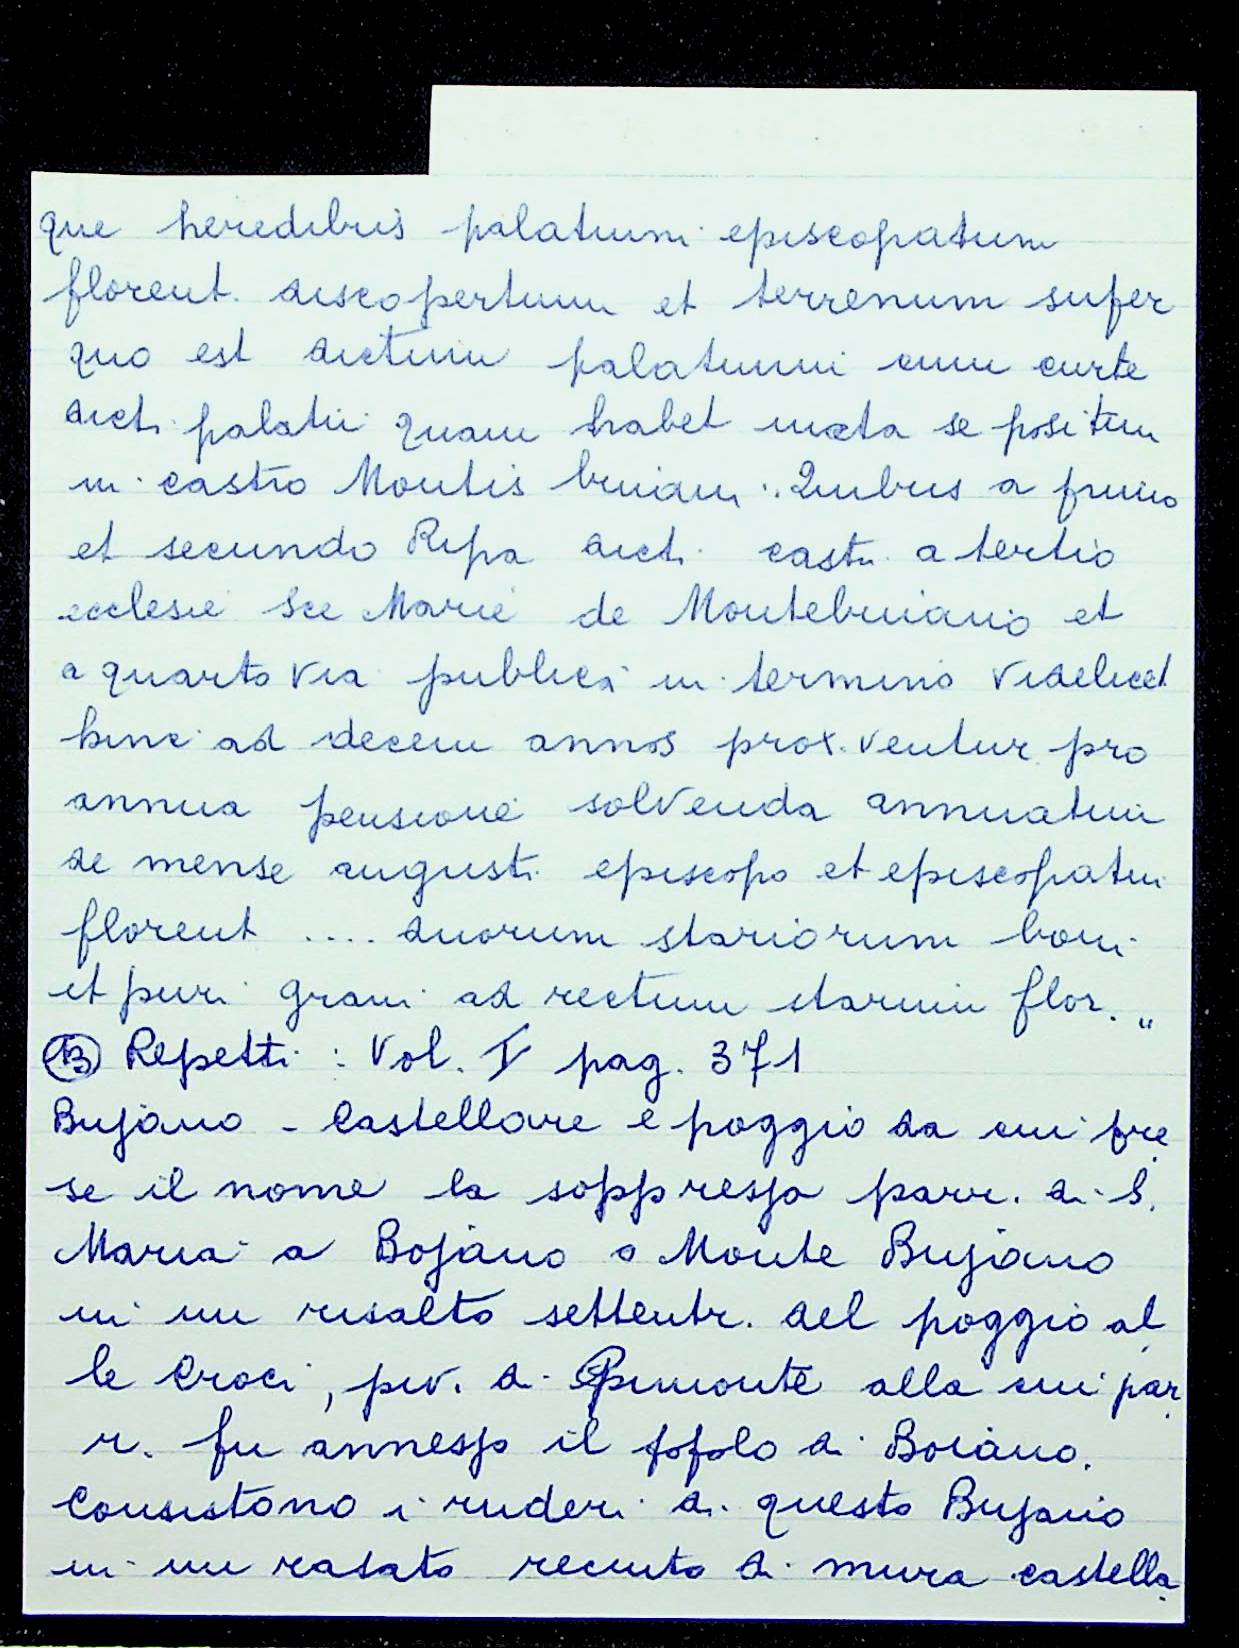 que heredibus palatium episcopatum
florent. discopertum et terrenum super
quo est dictum palatium cum curte
dicti palatii quam habet iuxta se positum
in castro Montis buiani. Quibus a primo
et secundo Ripa dicti castri a tertio
ecclesie Sce Marie de Montebuiano et
a quarto via publica in termino videlicet
hinc ad decem annos prox. ventur pro
annua pensione solvenda annuatim
de mense augusti episcopo et episcopatui
florent .... duorum stariorum boni
et puri grani ad rectum starium flor."
B Repetti : Vol. V pag. 371
Bujano - Castellare e poggio da cui pre
se il nome la soppressa parr. di S.
Maria a Bojano o Monte Bujano
in un risalto settentr. del poggio al
le Croci, piv. di Opimonte alla cui par
r. fu annesso il popolo di Boiano.
Consistono i ruderi di questo Bujano
in un rasato recinto di mura castella